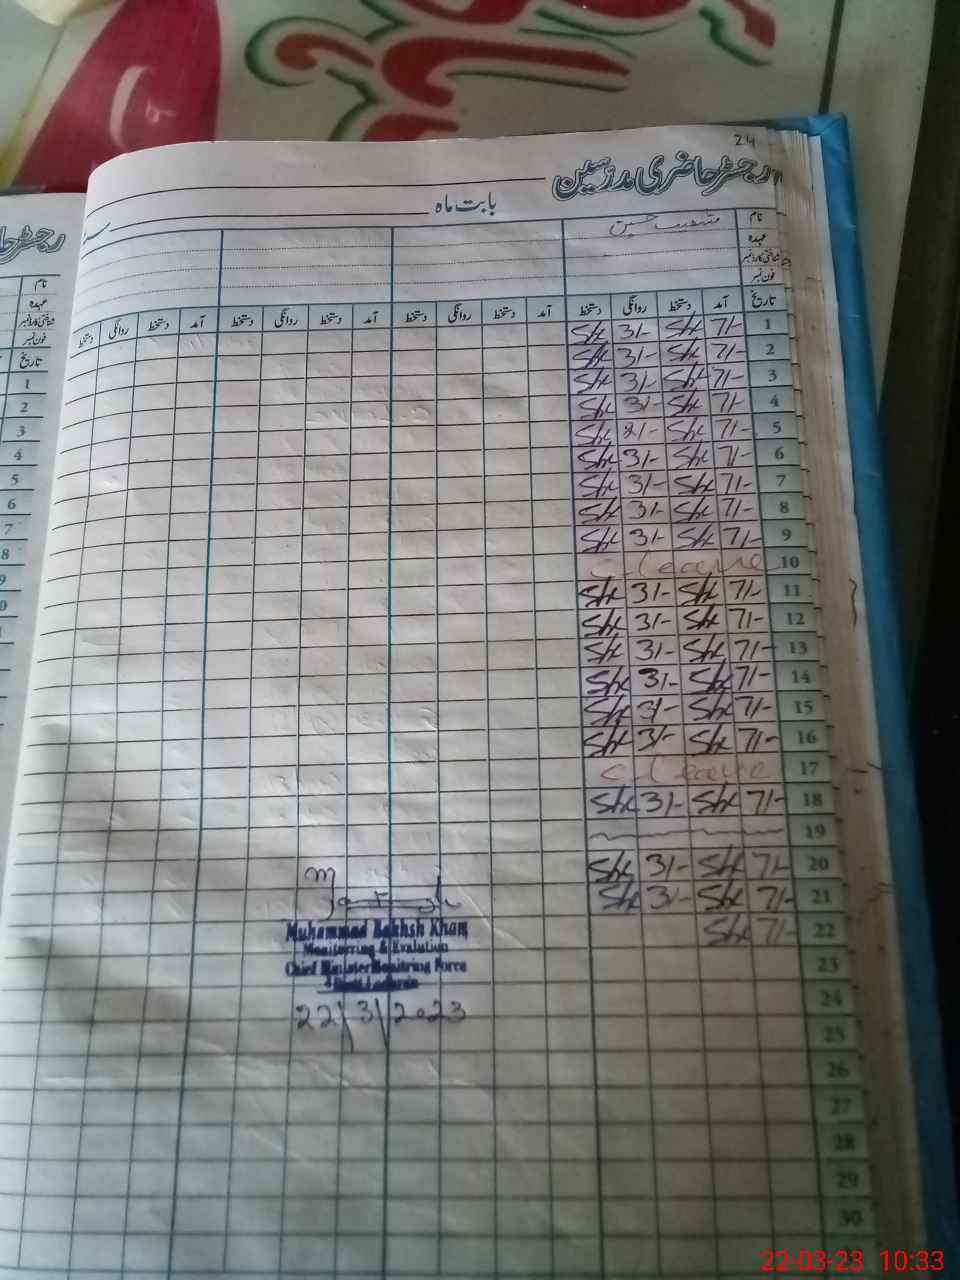 24
رجسٹر حاضری مدرسین
بابت ماہ
نام
حسین
عہدہ
شناختی کارڈ نمبر
فون نمبر
تاریخ آمد دستخط روانگی دستخط آمد دستخط روانگی دستخط آمد دستخط روانگی دستخط
1 7/- She 3/- She
2 7/- She 3/- She
3 7/- She 3/- She
4 7/- She 3/- She
5 7/- She 2/- She
6 7/- She 3/- She
7 7/- She 3/- She
8 7/- She 3/- She
9 7/- She 3/- She
10 c. leave
11 7/- She 3/- She
12 7/- She 3/- She
13 7/- She 3/- She
14 7/- She 3/- She
15 7/- She 3/- She
16 7/- She 3/- She
17 c. leave
18 7/- She 3/- She
19
20 7/- She 3/- She
21 7/- She 3/- She
22 7/- She
23
24
25
26
27
28
29
30
Muhammad Bakhsh Khan
Monitorring & Evalution
Chief Minister Monitring Force
Distt. Lodhran
22/3/2023
نام
عہدہ
شناختی کارڈ نمبر
فون نمبر
تاریخ
1
2
3
4
5
6
7
8
9
22-03-23 10:33